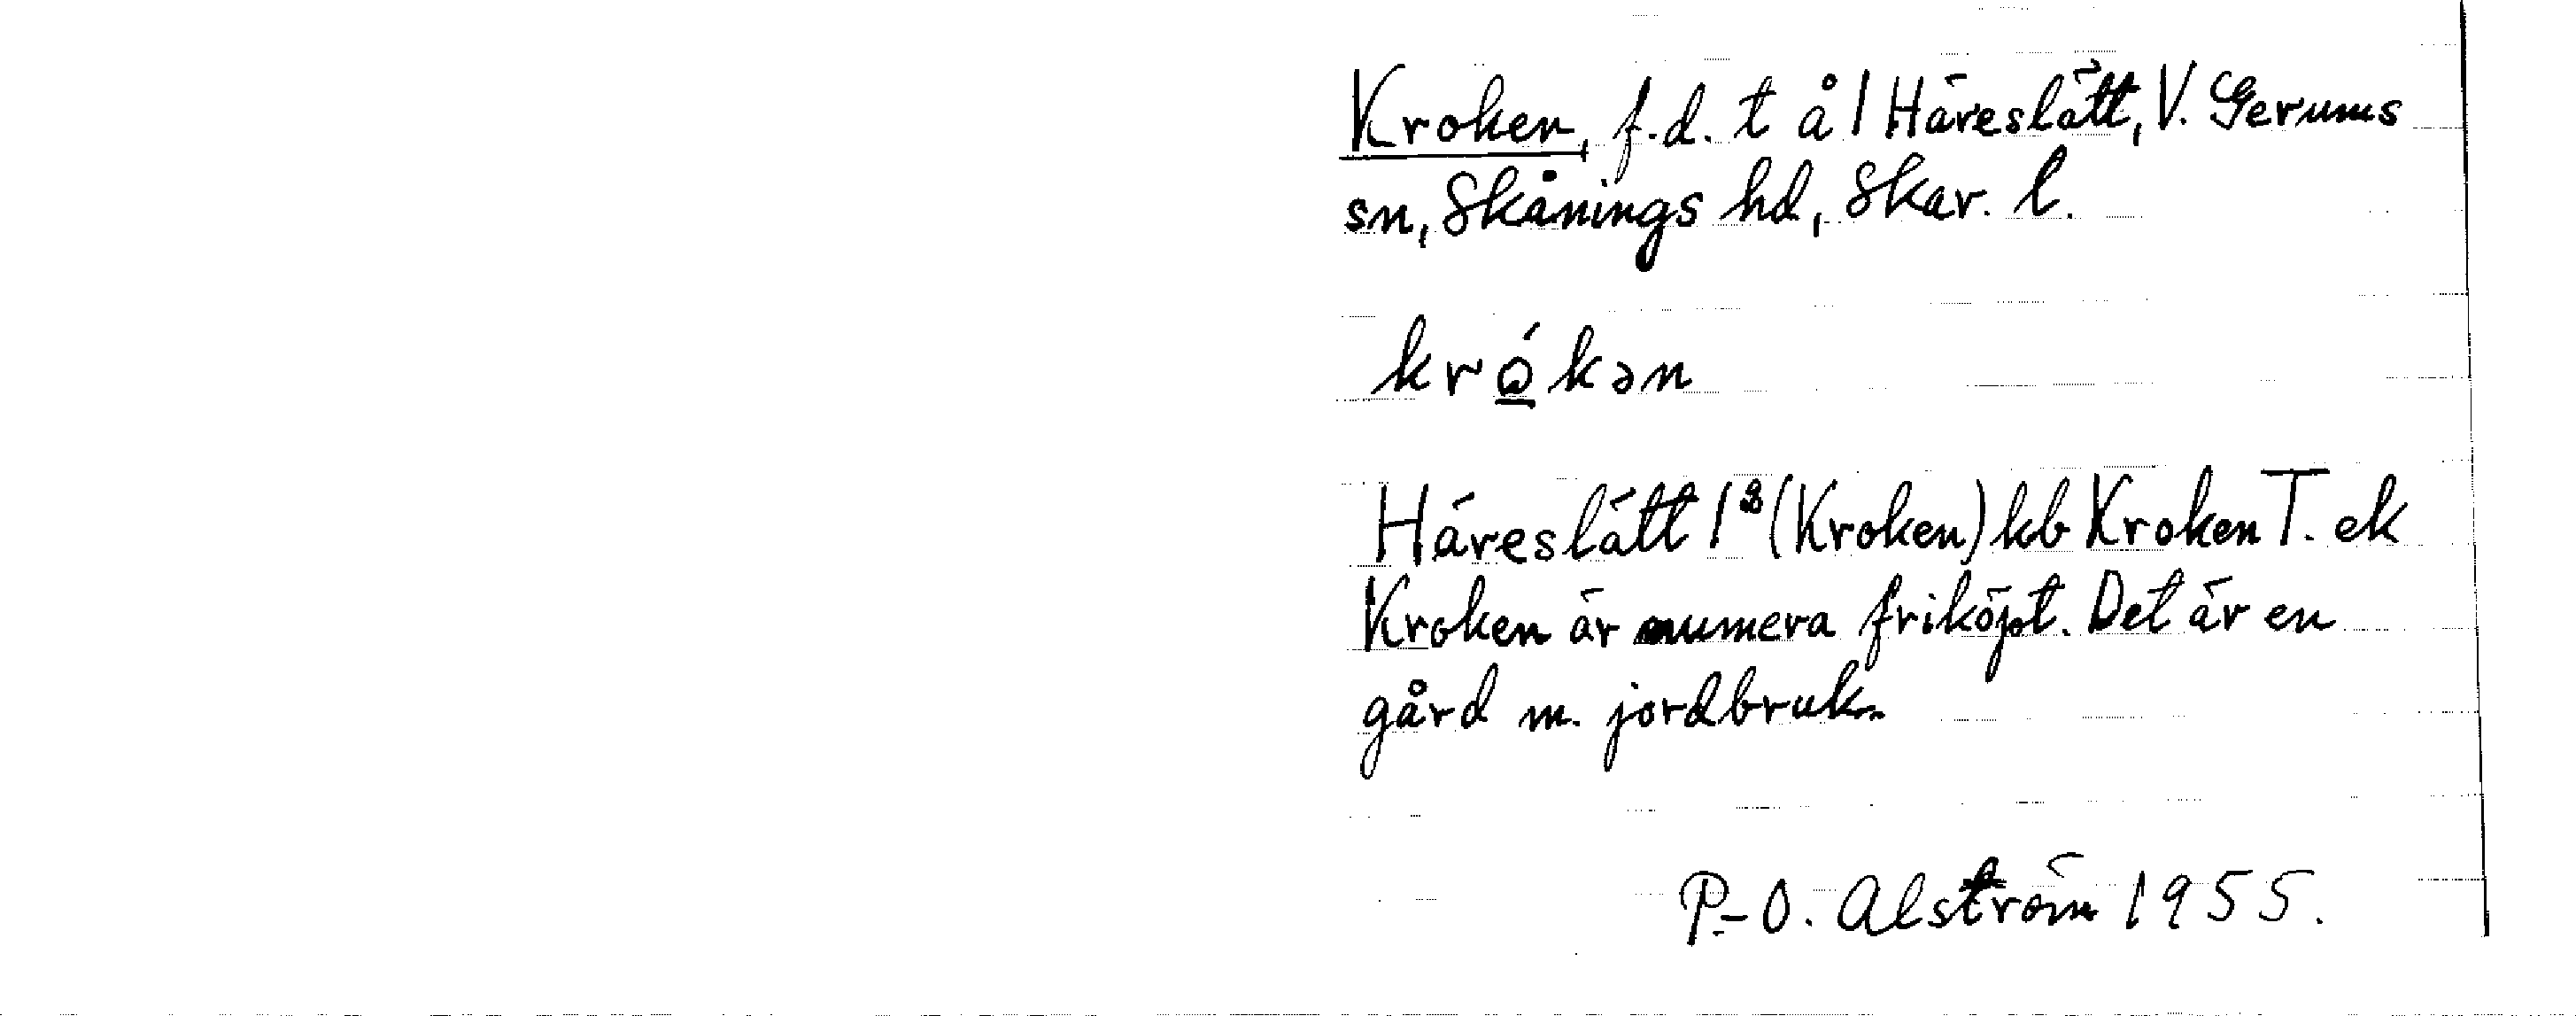 Kroken, f.d. t å 1 Häreslätt, V. Gerums
sn, Skånings hd, Skar. l.
krǫ́kən
Häreslätt 1⁸ (Kroken) kb Kroken T. ek
Kroken är numera friköpt. Det är en
gård m. jordbruk.
P-O. Alström 1955.